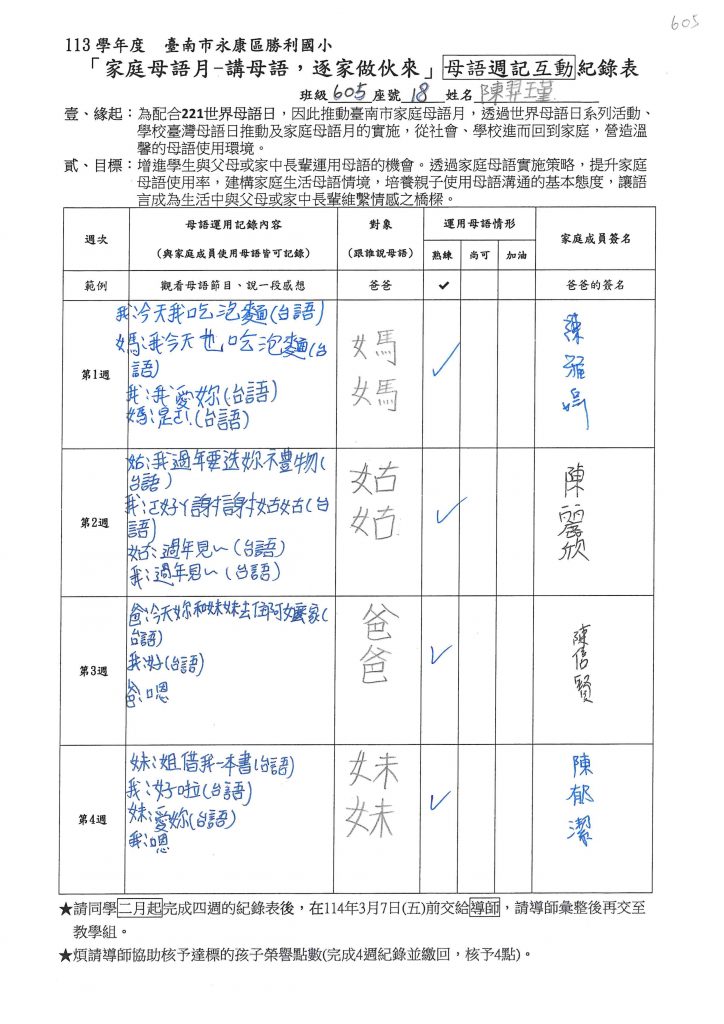 605
113學年度　臺南市永康區勝利國小
「家庭母語月-講母語，逐家做伙來」母語週記互動紀錄表
班級605座號18姓名陳羿瑾
壹、緣起：為配合221世界母語日，因此推動臺南市家庭母語月，透過世界母語日系列活動、
學校臺灣母語日推動及家庭母語月的實施，從社會、學校進而回到家庭，營造溫
馨的母語使用環境。
貳、目標：增進學生與父母或家中長輩運用母語的機會。透過家庭母語實施策略，提升家庭
母語使用率，建構家庭生活母語情境，培養親子使用母語溝通的基本態度，讓語
言成為生活中與父母或家中長輩維繫情感之橋樑。
週次 母語運用記錄內容 (與家庭成員使用母語皆可記錄) 對象 (跟誰說母語) 運用母語情形 熟練 尚可 加油 家庭成員簽名
範例 觀看母語節目、說一段感想 爸爸 ✓ 爸爸的簽名
第1週
我:今天我吃泡麵(台語)
媽:我今天也吃泡麵(台
語)
我:我愛妳(台語)
媽:是ㄛ(台語)
媽媽 ✓
第2週
姑:我過年要送妳禮物(
台語)
我:好ㄚ謝謝姑姑(台
語)
姑:過年見~(台語)
我:過年見~(台語)
姑姑 ✓ 陳麗欣
第3週
爸:今天妳和妹妹去阿嬤家(
台語)
我:好(台語)
爸:嗯
爸爸 ✓ 陳信賢
第4週
妹:姐借我一本書(台語)
我:好啦(台語)
妹:愛妳(台語)
我:嗯
妹妹 ✓ 陳郁潔
★請同學二月起完成四週的紀錄表後，在114年3月7日(五)前交給導師，請導師彙整後再交至
教學組。
★煩請導師協助核予達標的孩子榮譽點數(完成4週紀錄並繳回，核予4點)。